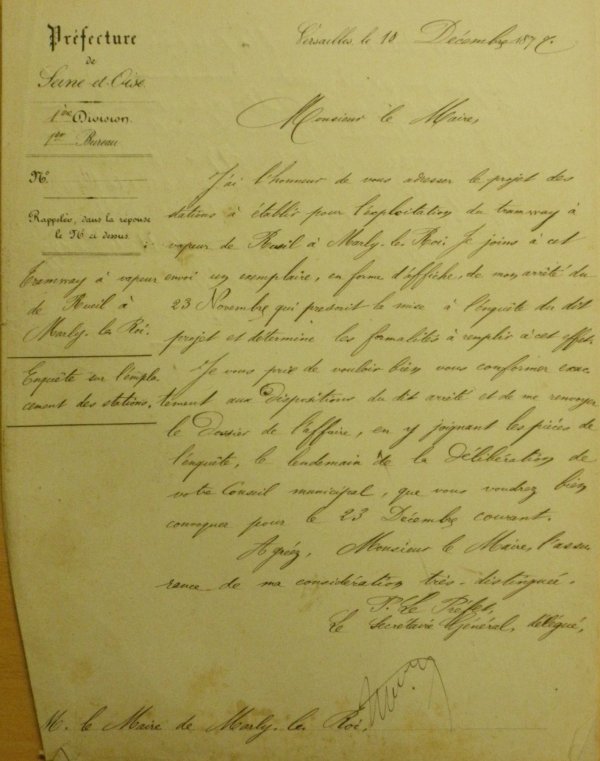 Préfecture
de
Seine-et-Oise.
1ère Division.
1er Bureau
N°
Rappeler, dans la réponse
le N° ci-dessus.
Tramway à vapeur
de Rueil à
Marly-le-Roi.
Enquête sur l'empla-
cement des stations.
Versailles, le 10 Décembre 187
Monsieur le Maire,
J'ai l'honneur de vous adresser le projet des
stations à établir pour l'exploitation du tramway à
vapeur de Rueil à Marly-le-Roi. Je joins à cet
envoi un exemplaire, en forme d'affiche, de mon arrêté du
23 Novembre qui prescrit la mise à l'enquête du dit
projet et détermine les formalités à remplir à cet effet.
Je vous prie de vouloir bien vous conformer exac-
tement aux dispositions du dit arrêté et de me renvoyer
le Dossier de l'affaire, en y joignant les pièces de
l'enquête, le lendemain de la délibération de
votre Conseil municipal, que vous voudrez bien
convoquer pour le 23 Décembre courant.
Agréez, Monsieur le Maire, l'assu-
rance de ma considération très-distinguée.
Pr Le Préfet,
Le Secrétaire Général, délégué,
M. le Maire de Marly-le-Roi.